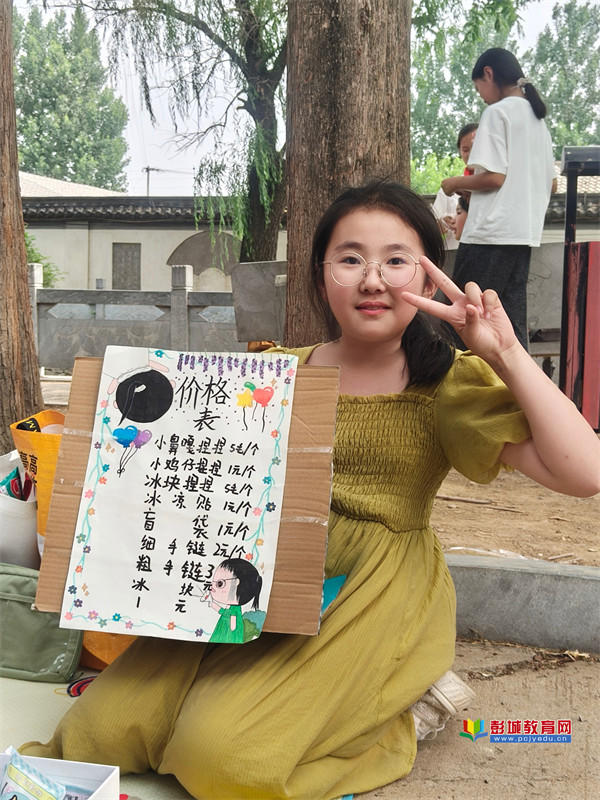 价格
表
小鼻嘎捏捏 5毛/个
小鸡仔捏捏 1元/个
冰块捏捏 5毛/个
冰凉贴 1元/个
盲袋 1元/个
细手链 2元/个
粗手链3元
冰块
1元
彭城教育网
www.pcjyedu.cn